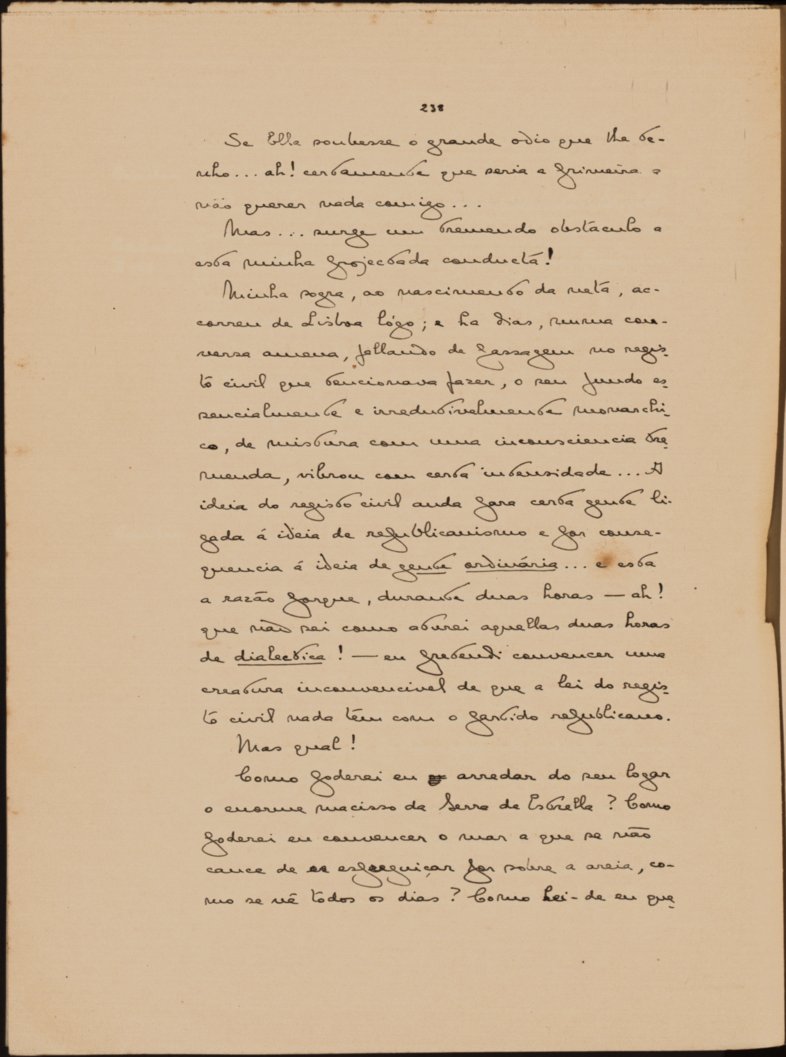 238
Se Ella soubesse o grande odio que lhe te-
nho... ah! certamente que seria a primeira a
não querer nada comigo...
Mas... surge um tremendo obstaculo a
esta minha projectada conducta!
Minha sogra, ao nascimento da neta, ac-
correu de Lisboa lógo; e ha dias, numa con-
versa amena, fallando de passagem no regis-
to civil que tencionava fazer, o seu fundo es-
sencialmente e irredutivelmente monarchi-
co, de mistura com uma inconsciencia tre-
menda, vibrou com certa intensidade... A
ideia do registo civil anda para certa gente li-
gada á ideia de republicanismo e por conse-
quencia á ideia de gente ordinária... e esta
a razão porque, durante duas horas — ah!
que não sei como aturei aquellas duas horas
de dialectica! — eu pretendi convencer uma
creatura inconvencivel de que a lei do regis-
to civil nada têm com o partido republicano.
Mas qual!
Como poderei eu arredar do seu logar
o enorme macisso da Serra da Estrella? Como
poderei eu convencer o mar a que se não
cance de espreguiçar por sobre a areia, co-
mo se vê todos os dias? Como hei-de eu que-